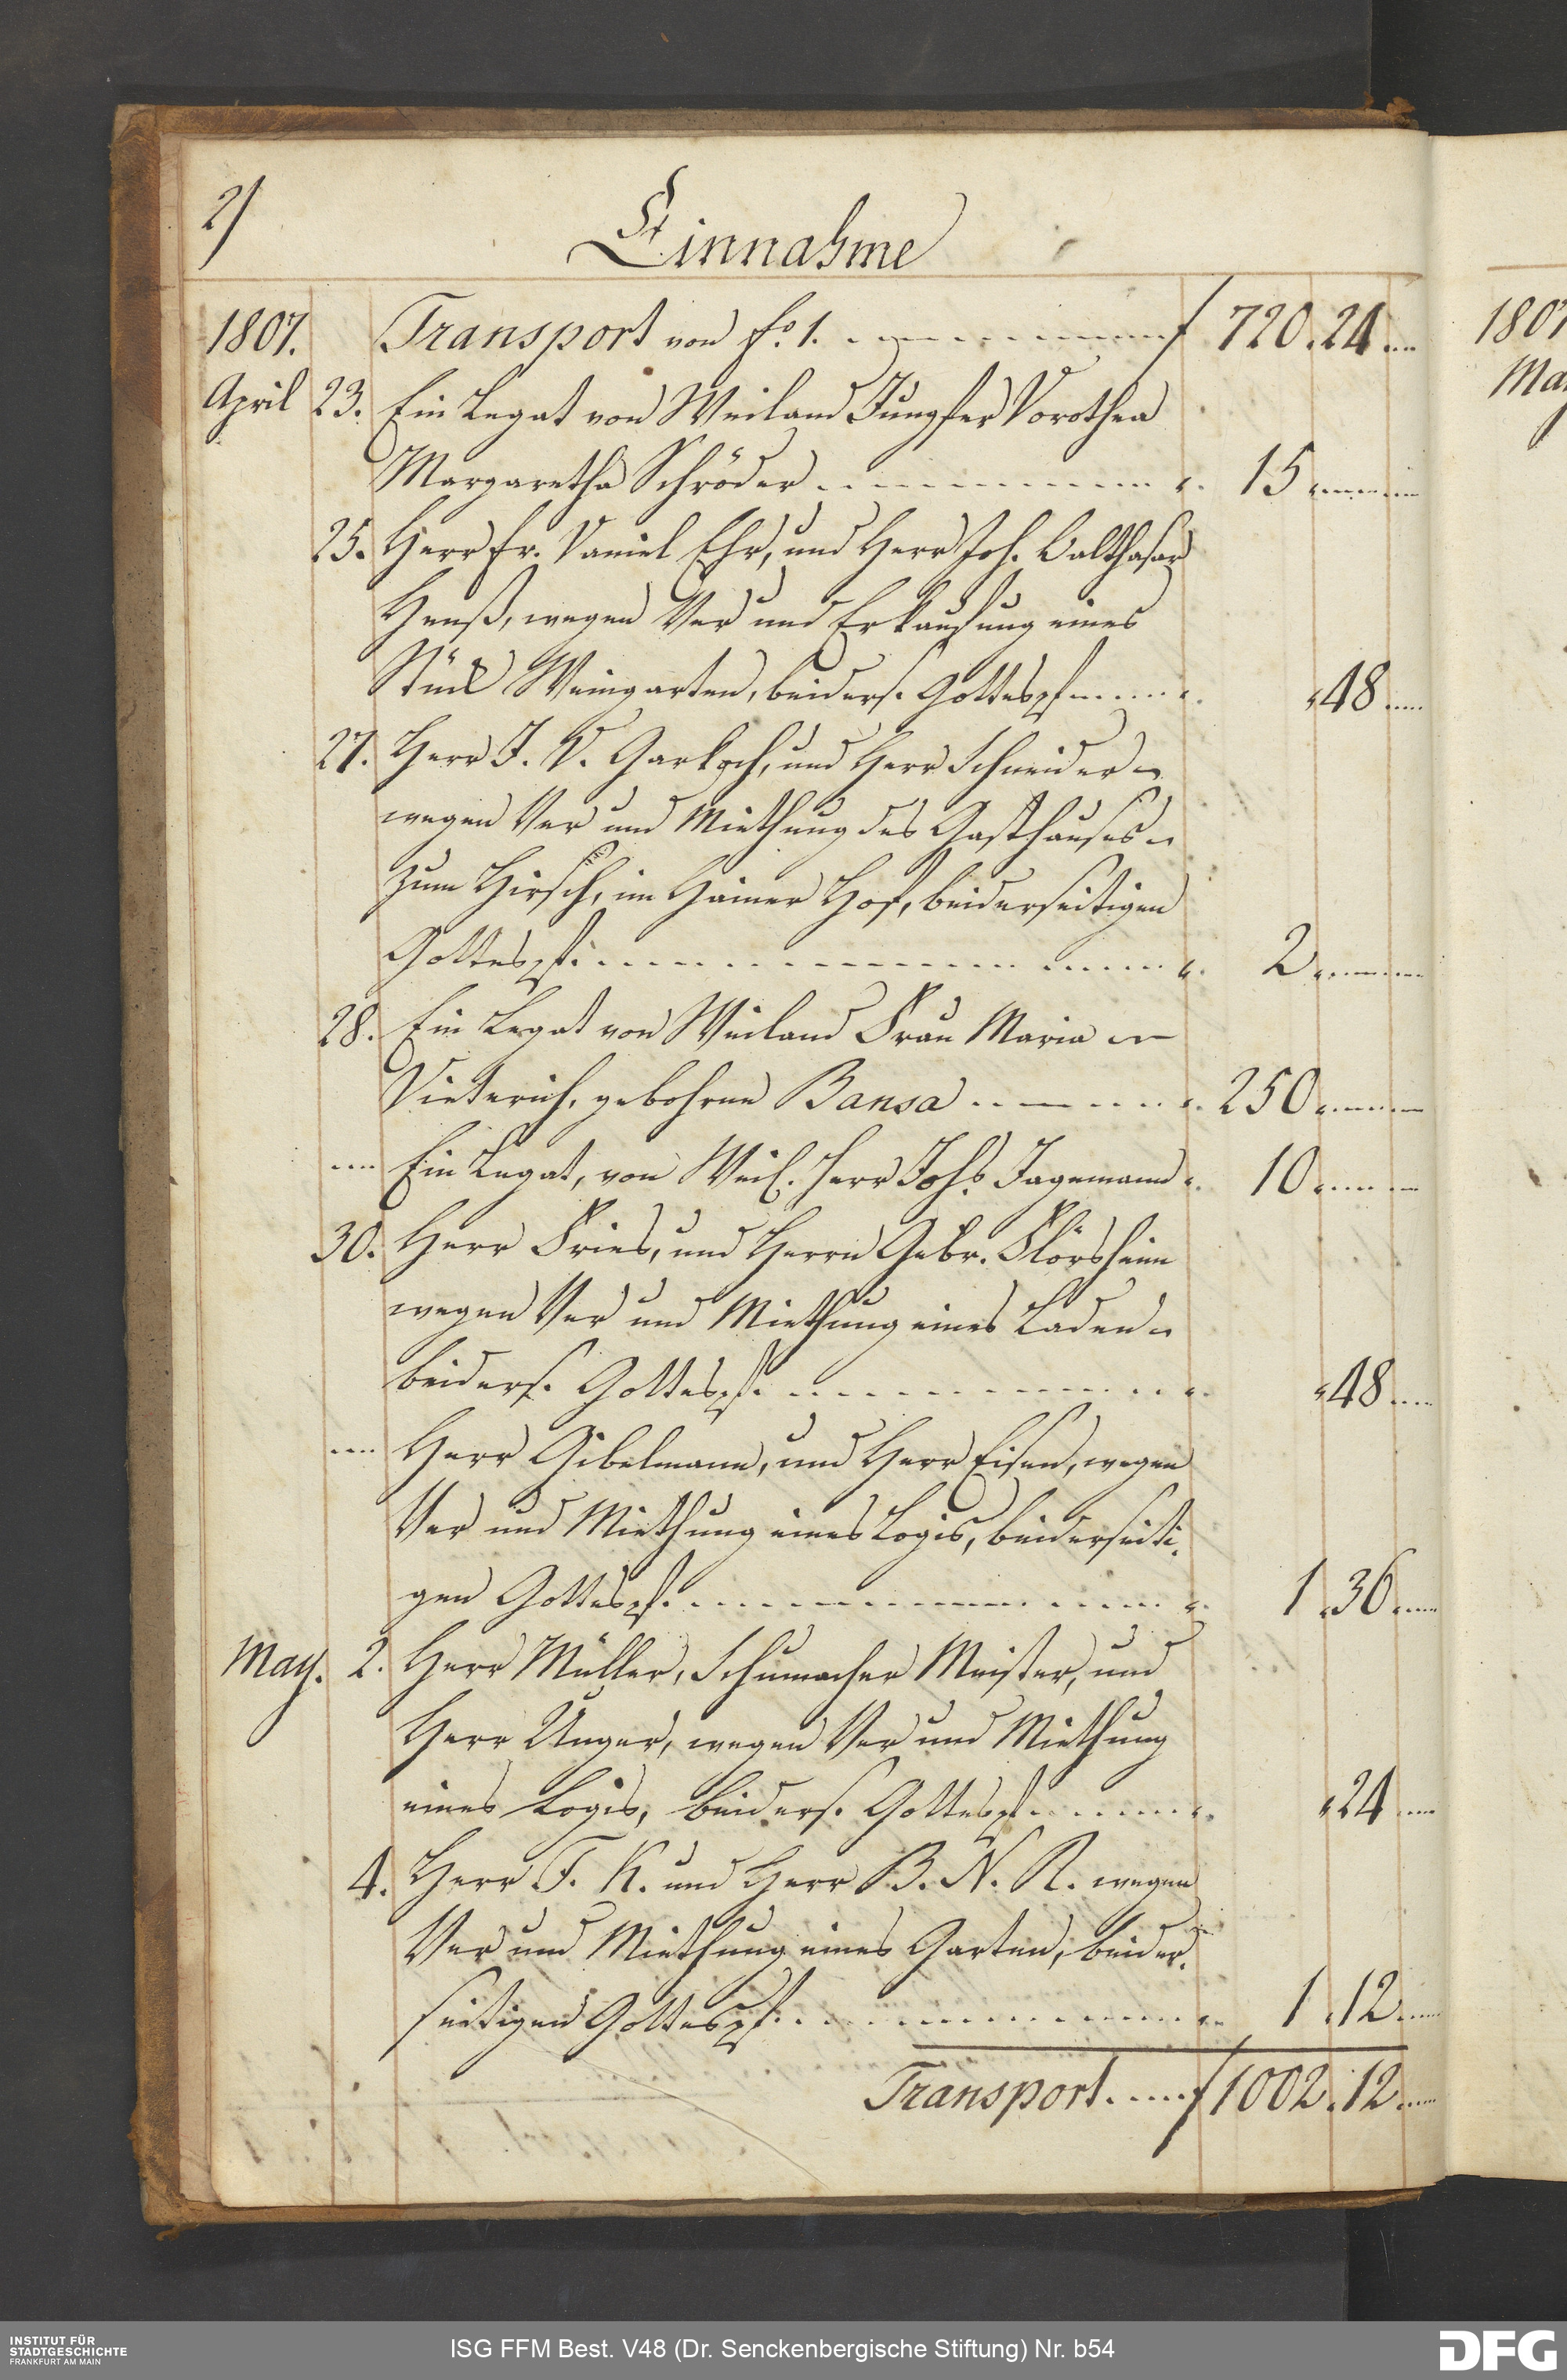 2)
Einnahme
1807. Transport von fo. 1. f 720. 24.
April 23. Ein Legat von Weiland Jungfer Dorothea
Margaretha Schröder 15
25. Herr Fr. Daniel Ehr, und Herr Joh. Balthasar
Henß, wegen Ver und Erkaufung eines
Stück Weingarten, beiders. Gottespf 48
27. Herr J. D. Garkoch, und Herr Schneider
wegen Ver und Miethung des Gasthauses
zum Hirsch, im Hainer Hof, beiderseitigen
Gottespf. 2
28. Ein Legat von Weiland Frau Maria
Dieterich, gebohrne Bansa 250
Ein Legat, von Weil. Herr Johs. Jagemann 10
30. Herr Fries, und Herrn Gebr. Flörsheim
wegen Ver und Miethung eines Laden
beiders. Gottespf. 48
Herr Gibelmann, und Herr Eisen, wegen
Ver und Miethung eines Logis, beiderseiti-
gen Gottespf. 1. 36
May. 2. Herr Müller, Schumacher Meister, und
Herr Unger, wegen Ver und Miethung
eines Logis, beiders. Gottespf. 24
4. Herr F. K. und Herr B. N. R. wegen
Ver und Miethung eines Garten, beider-
seitigen Gottespf. 1. 12
Transport. f 1002. 12
1807
Ma
INSTITUT FÜR
STADTGESCHICHTE
FRANKFURT AM MAIN
ISG FFM Best. V48 (Dr. Senckenbergische Stiftung) Nr. b54
DFG